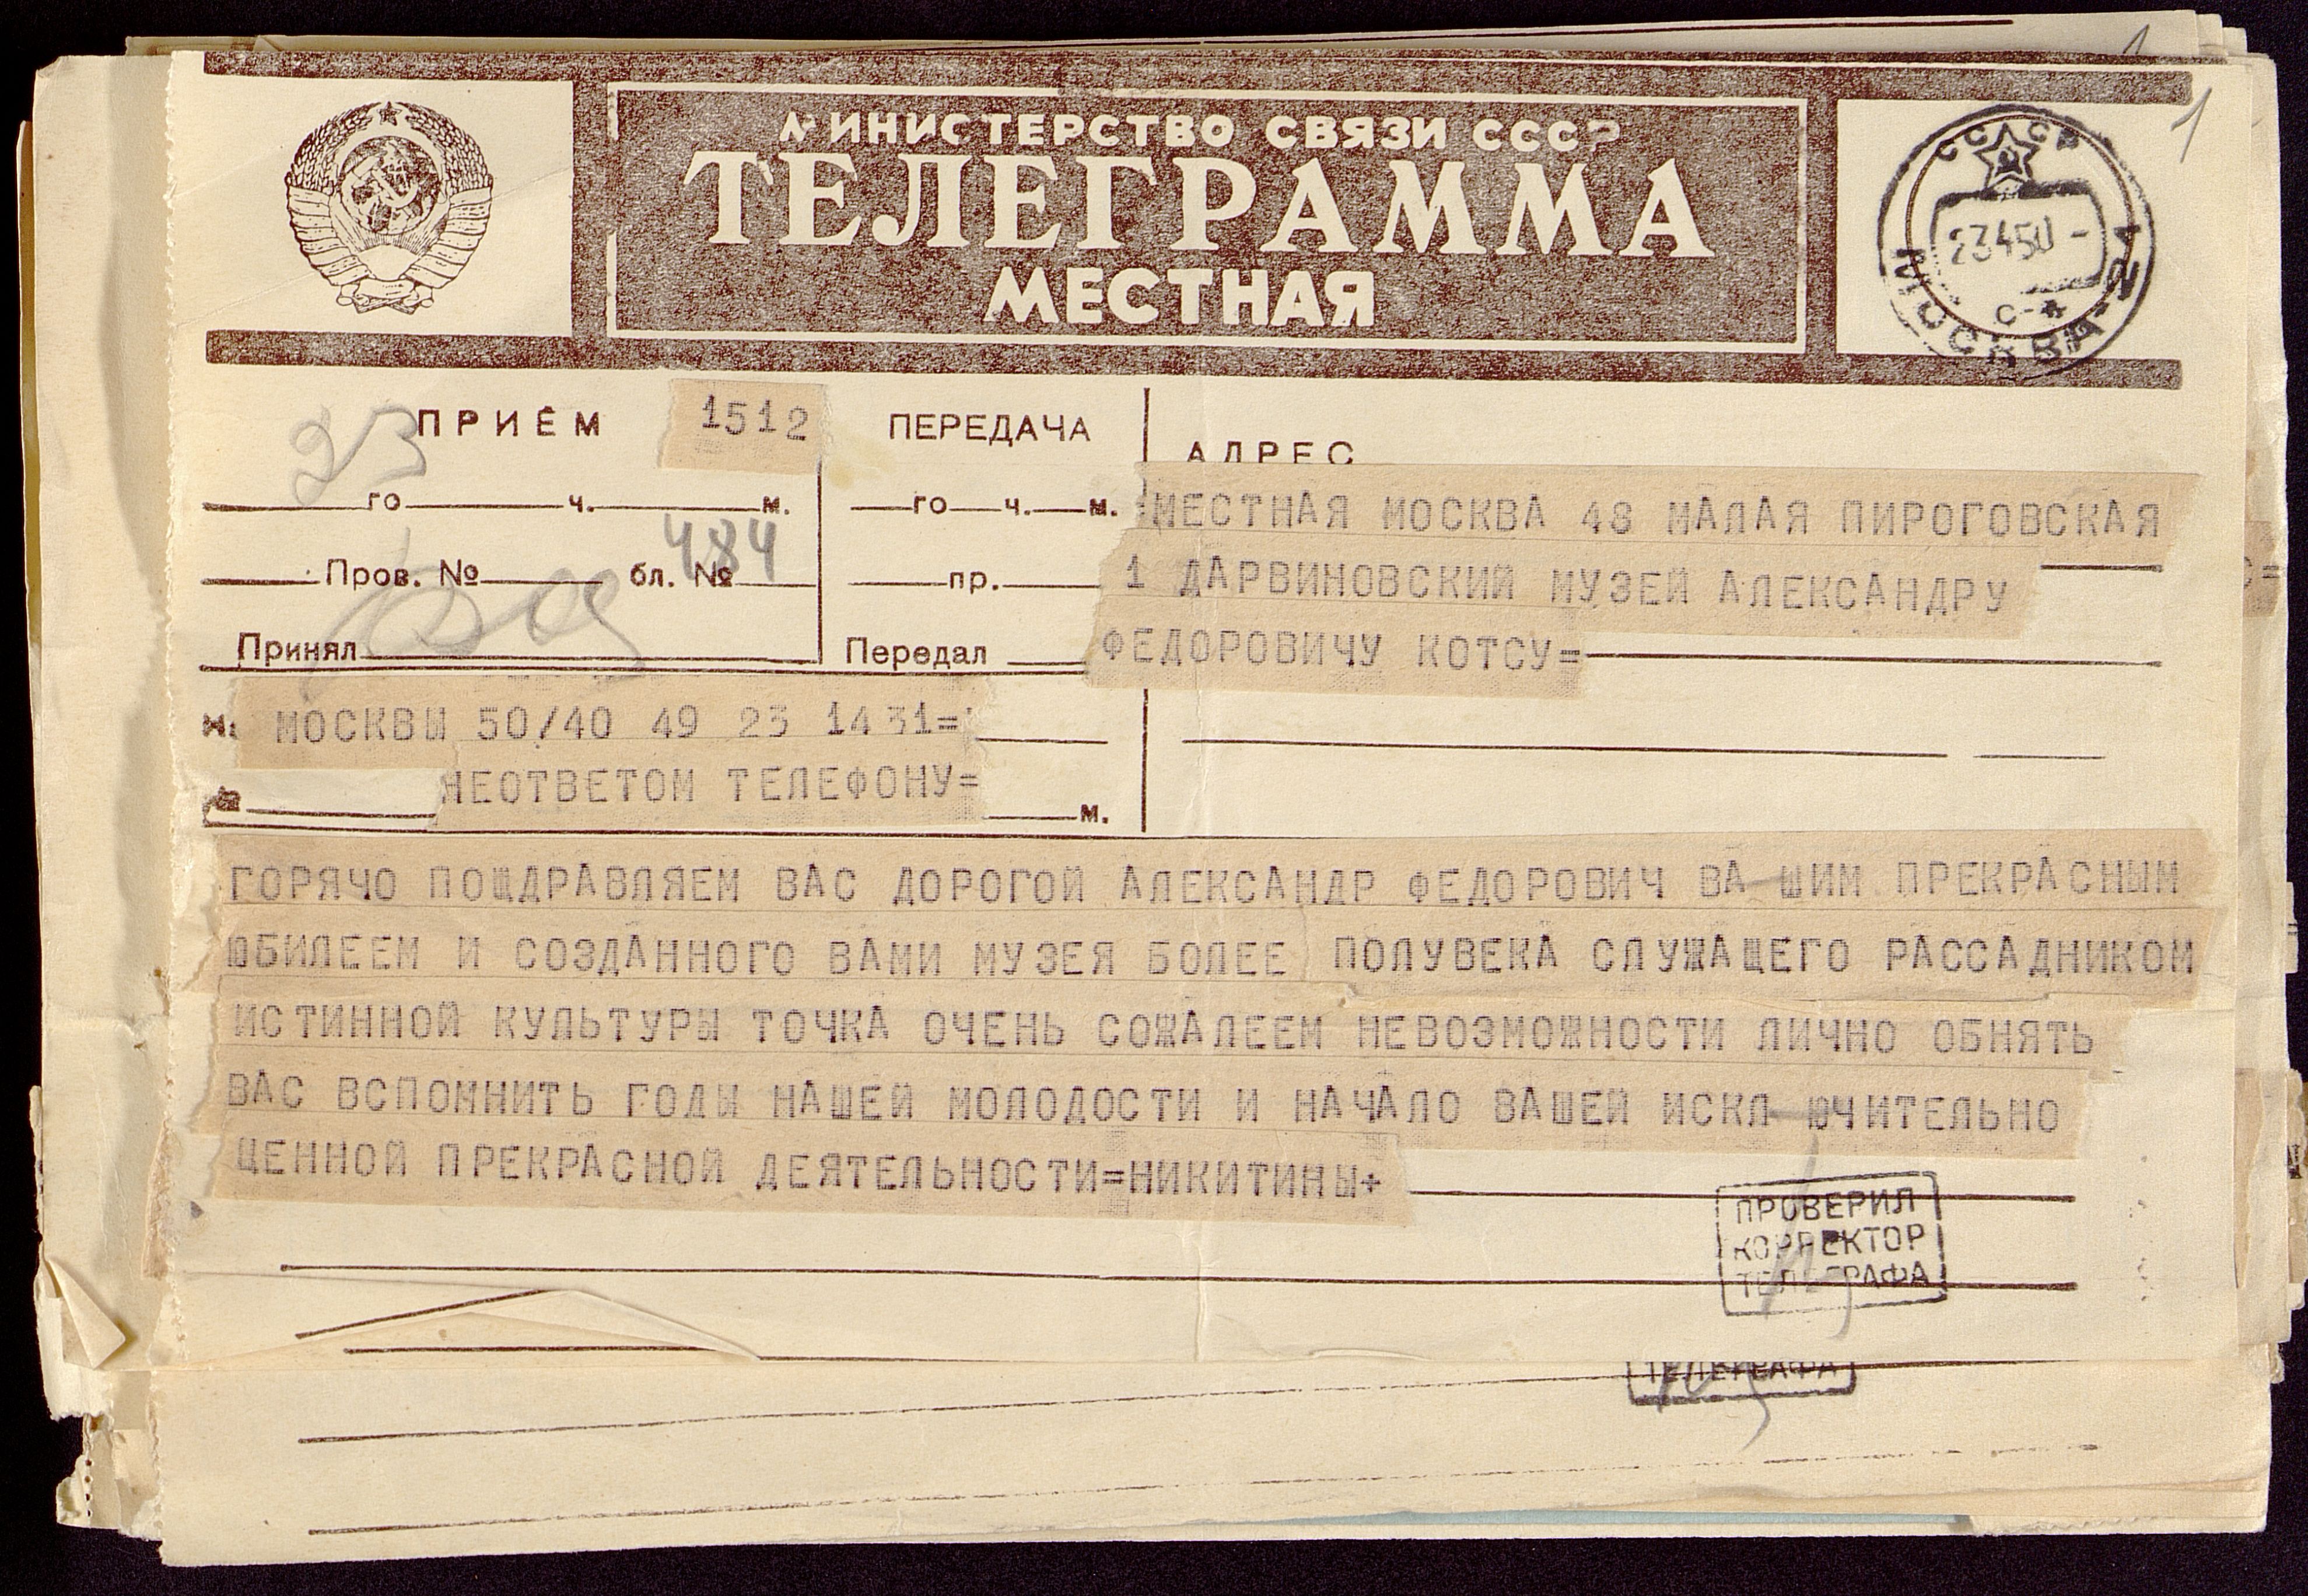 1
МИНИСТЕРСТВО СВЯЗИ СССР
ТЕЛЕГРАММА
МЕСТНАЯ
СССР
23450-
С-4
МОСКВА-21
23
ПРИЁМ 1512
го ч. м.
Пров. № бл. № 484
Принял
ПЕРЕДАЧА
го ч. м.
пр.
Передал
АДРЕС
МЕСТНАЯ МОСКВА 48 МАЛАЯ ПИРОГОВСКАЯ
1 ДАРВИНОВСКИЙ МУЗЕЙ АЛЕКСАНДРУ
ФЕДОРОВИЧУ КОТСУ=
МОСКВЫ 50/40 49 23 1431=
НЕОТВЕТОМ ТЕЛЕФОНУ=
№ м.
ГОРЯЧО ПОЩДРАВЛЯЕМ ВАС ДОРОГОЙ АЛЕКСАНДР ФЕДОРОВИЧ ВА ШИМ ПРЕКРАСНЫМ
ЮБИЛЕЕМ И СОЗДАННОГО ВАМИ МУЗЕЯ БОЛЕЕ ПОЛУВЕКА СЛУЖАЩЕГО РАССАДНИКОМ
ИСТИННОЙ КУЛЬТУРЫ ТОЧКА ОЧЕНЬ СОЖАЛЕЕМ НЕВОЗМОЖНОСТИ ЛИЧНО ОБНЯТЬ
ВАС ВСПОМНИТЬ ГОДЫ НАШЕЙ МОЛОДОСТИ И НАЧАЛО ВАШЕЙ ИСКЛ ЮЧИТЕЛЬНО
ЦЕННОЙ ПРЕКРАСНОЙ ДЕЯТЕЛЬНОСТИ=НИКИТИНЫ+
ПРОВЕРИЛ
КОРРЕКТОР
ТЕЛЕГРАФА
ТЕЛЕГРАФА